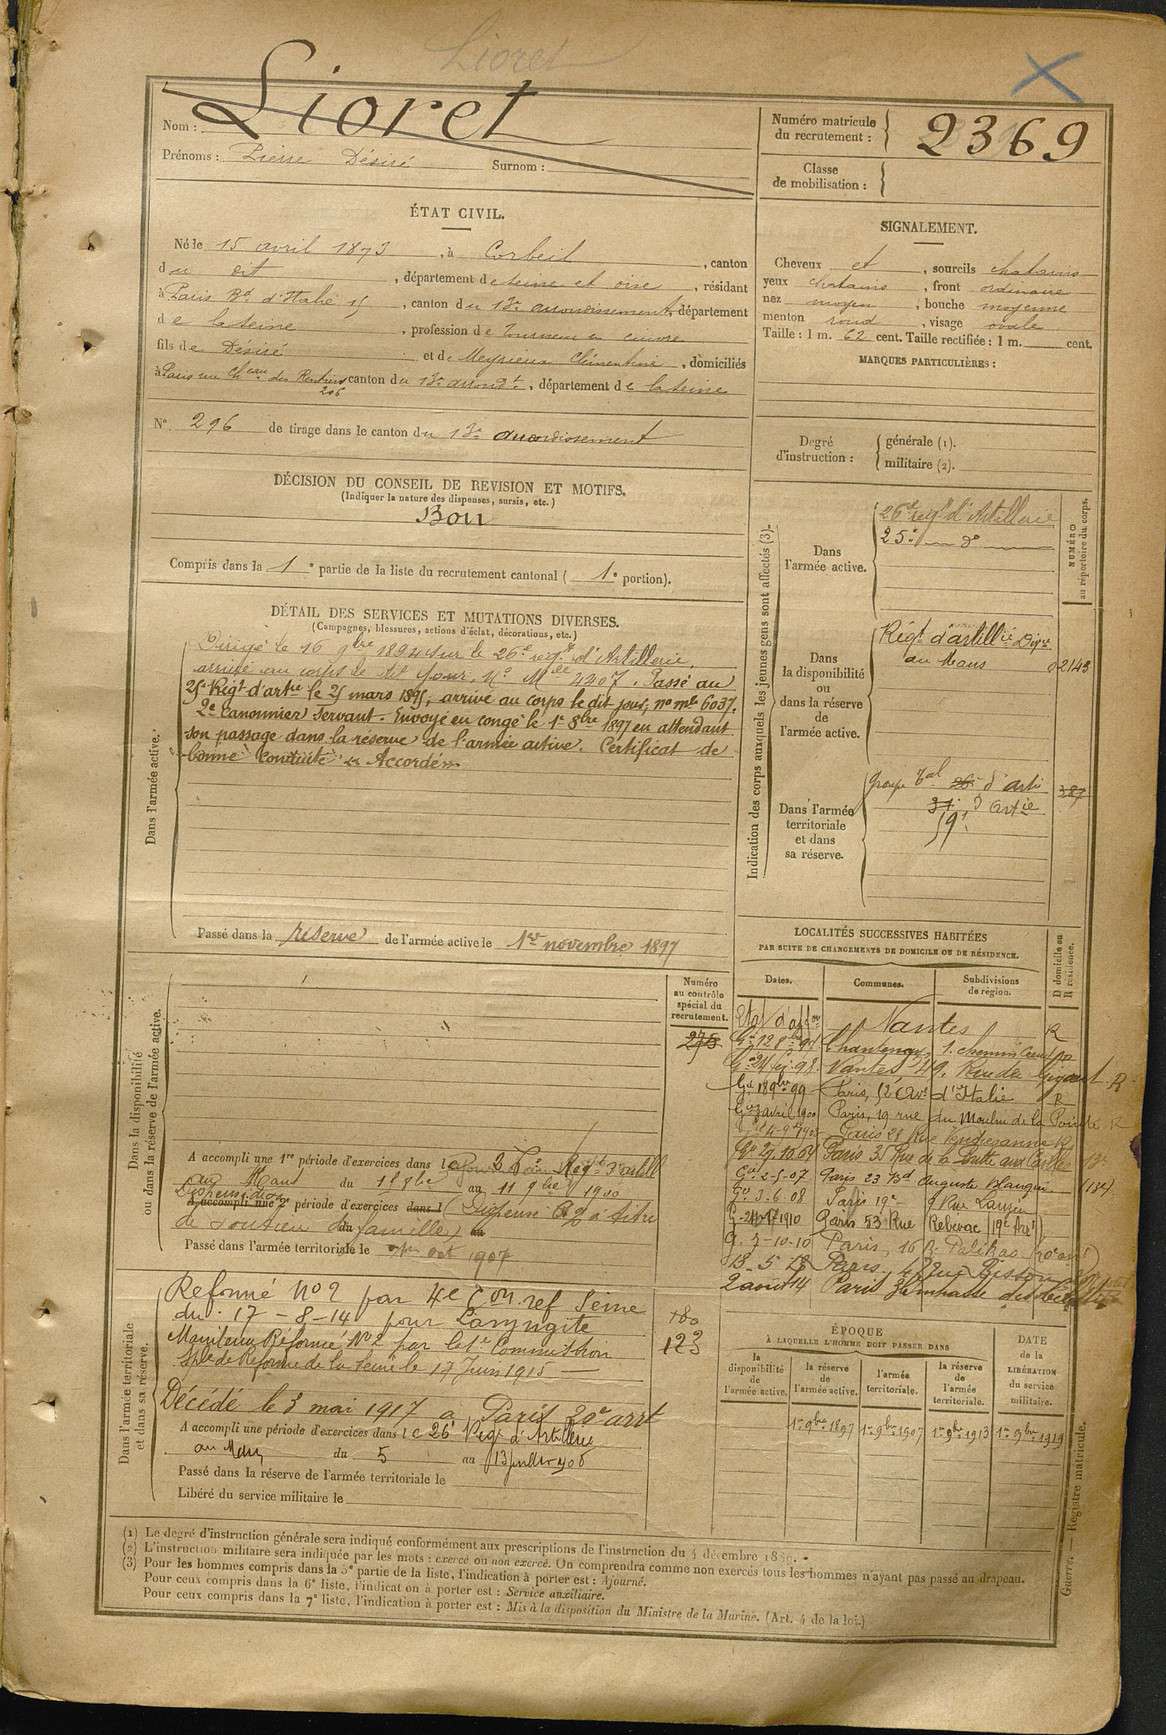 Lioret
Lioret
Nom :
Prénoms : Pierre Désiré Surnom :
Numéro matricule du recrutement : 2369
Classe de mobilisation :
ÉTAT CIVIL.
Né le 15 avril 1873, à Corbeil, canton
du dit, département de Seine et oise, résidant
à Paris Bd d'Italie 15, canton du 13e arrondissement, département
de la Seine, profession de Tourneur en cuivre
fils de Désiré et de Clémentine, domiciliés
à Paris rue Chau des Rentiers 206 canton du 13e arrondt, département de la Seine
N° 296 de tirage dans le canton du 13e arrondissement
SIGNALEMENT.
Cheveux et, sourcils chatains
yeux chatains, front ordinaire
nez moyen, bouche moyenne
menton rond, visage ovale
Taille : 1 m. 62 cent. Taille rectifiée : 1 m. cent.
MARQUES PARTICULIÈRES :
Degré d'instruction : générale (1).
militaire (2).
DÉCISION DU CONSEIL DE REVISION ET MOTIFS.
(Indiquer la nature des dispenses, sursis, etc.)
Bon
Compris dans la 1e partie de la liste du recrutement cantonal (1e portion).
DÉTAIL DES SERVICES ET MUTATIONS DIVERSES.
(Campagnes, blessures, actions d'éclat, décorations, etc.)
Dans l'armée active.
Dirigé le 16 9bre 1894 sur le 26e regt d'Artillerie,
arrivé au corps le dit jour, No Mle 4907. Passé au
25e Régt d'artie le 25 mars 1895, arrivé au corps le dit jour, no mle 6037.
2e canonnier Servant. Envoyé en congé le 1er 8bre 1897 en attendant
son passage dans la reserve de l'armée active. Certificat de
bonne conduite "Accordé"
Passé dans la reserve de l'armée active le 1er novembre 1897
Indication des corps auxquels les jeunes gens sont affectés (3).
NUMÉRO au répertoire du corps.
Dans l'armée active.
26e regt d'Artillerie
25e do
Dans la disponibilité ou dans la réserve de l'armée active.
Régt d'artillie
au Mans
02143
Dans l'armée territoriale et dans sa réserve.
Groupe tal 26e d'artie
37e d'artie
387
LOCALITÉS SUCCESSIVES HABITÉES
PAR SUITE DE CHANGEMENTS DE DOMICILE OU DE RÉSIDENCE.
Dates. Communes. Subdivisions de région. D domicile ou R résidence.
Nantes R
Chantenay, 1. chemin
Nantes 49. Rue de Gigant R
Gie 18 9bre 99 Paris, 52 Ave d'Italie R
Gie avril 1900 Paris, 19 rue du Moulin de la Pointe R
Paris 28 Rue
Paris 31 Rue de la Butte aux Cailles
Gie 2-5-07 Paris 23 Bd Auguste Blanqui (13e)
Gie 3.6.08 Paris 19e Rue Lauzin
1910 Paris 53 Rue Rebeval (19e Art)
G. 7-10-10 Paris, 16 R. Palikao (20e arr)
18-5-12 Paris, Rue Piston
2 aout 14 Paris 3 Impasse
Dans la disponibilité ou dans la réserve de l'armée active.
Numéro au contrôle spécial du recrutement.
275
A accompli une 1re période d'exercices dans le Régt d'artill
au Mans du 15 8bre au 11 9bre 1900
A accompli une 2e période d'exercices dans l (Dispensé à titre
de soutien de famille) au
Passé dans l'armée territoriale le 1er oct 1907
Dans l'armée territoriale et dans sa réserve.
Reformé No 2 par 4e Con ref Seine
du 17-8-14 pour Laryngite
Maintenu Réformé No 2 par la 1e Commission
Sple de Réforme de la Seine le 17 Juin 1915
Décédé le 3 mai 1917 a Paris 20e arrt
180
123
A accompli une période d'exercices dans le 26e Régt d'Artillerie
au Mans du 5 au 13 juillet 1908
Passé dans la réserve de l'armée territoriale le
Libéré du service militaire le
ÉPOQUE
À LAQUELLE L'HOMME DOIT PASSER DANS
la disponibilité de l'armée active.
la réserve de l'armée active.
l'armée territoriale.
la réserve de l'armée territoriale.
DATE de la LIBÉRATION du service militaire.
1er 9bre 1897 1er 9bre 1907 1er 9bre 1913 1er 9bre 1919
(1) Le degré d'instruction générale sera indiqué conformément aux prescriptions de l'instruction du 4 décembre 1889.
(2) L'instruction militaire sera indiquée par les mots : exercé ou non exercé. On comprendra comme non exercés tous les hommes n'ayant pas passé au drapeau.
(3) Pour les hommes compris dans la 5e partie de la liste, l'indication à porter est : Ajourné.
Pour ceux compris dans la 6e liste, l'indication à porter est : Service auxiliaire.
Pour ceux compris dans la 7e liste, l'indication à porter est : Mis à la disposition du Ministre de la Marine. (Art. 4 de la loi.)
Guerre. — Registre matricule.